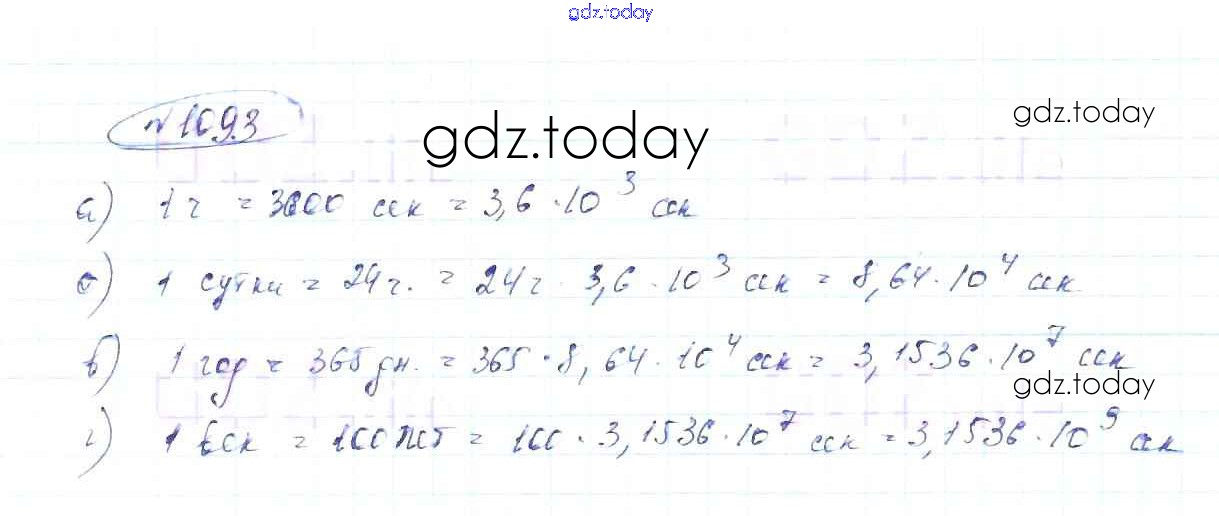 gdz.today
№1093
gdz.today
gdz.today
а) 1 ч = 3600 сек = 3,6 · 10³ сек
б) 1 сутки = 24 ч. = 24 ч · 3,6 · 10³ сек = 8,64 · 10⁴ сек
в) 1 год = 365 дн. = 365 · 8,64 · 10⁴ сек = 3,1536 · 10⁷ сек
gdz.today
г) 1 век = 100 лет = 100 · 3,1536 · 10⁷ сек = 3,1536 · 10⁹ сек